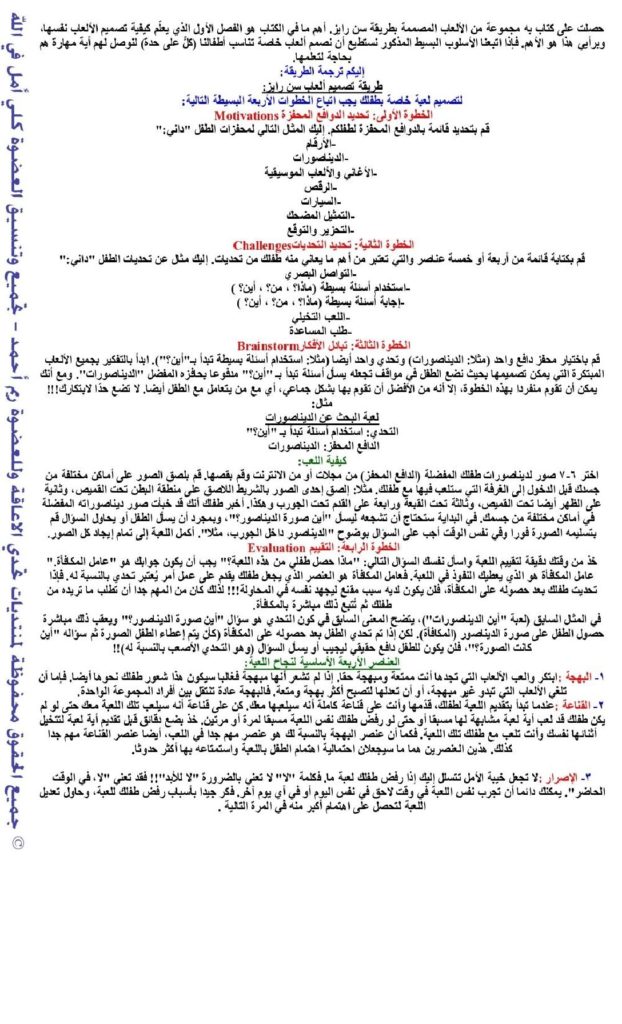 حصلت على كتاب به مجموعة من الألعاب المصممة بطريقة سن رايز. أهم ما في الكتاب هو الفصل الأول الذي يعلّم كيفية تصميم الألعاب نفسها،
وبرأيي هذا هو الأهم. فإذا اتبعنا الأسلوب البسيط المذكور نستطيع أن نصمم ألعاب خاصة تناسب أطفالنا (كلٌّ على حدة) لنوصل لهم أية مهارة هم
بحاجة لتعلمها.
إليكم ترجمة الطريقة:
طريقة تصميم ألعاب سن رايز:
لتصميم لعبة خاصة بطفلك يجب اتباع الخطوات الأربعة البسيطة التالية:
الخطوة الأولى: تحديد الدوافع المحفزة Motivations
قم بتحديد قائمة بالدوافع المحفزة لطفلكم. إليك المثال التالي لمحفزات الطفل "داني:"
-الأرقام
-الديناصورات
-الأغاني والألعاب الموسيقية
-الرقص
-السيارات
-التمثيل المضحك
-التحزير والتوقع
الخطوة الثانية: تحديد التحدياتChallenges
قم بكتابة قائمة من أربعة أو خمسة عناصر والتي تعتبر من أهم ما يعاني منه طفلك من تحديات. إليك مثال عن تحديات الطفل "داني:"
-التواصل البصري
-استخدام أسئلة بسيطة (ماذا؟ ، من؟ ، أين؟ )
-إجابة أسئلة بسيطة (ماذا؟ ، من؟ ، أين؟ )
-اللعب التخيلي
-طلب المساعدة
الخطوة الثالثة: تبادل الأفكارBrainstorm
قم باختيار محفز دافع واحد (مثلا: الديناصورات) وتحدي واحد أيضا (مثلا: استخدام أسئلة بسيطة تبدأ بـ"أين؟"). ابدأ بالتفكير بجميع الألعاب
المبتكرة التي يمكن تصميمها بحيث نضع الطفل في مواقف تجعله يسأل أسئلة تبدأ بـ "أين؟" مدفوعا بحافزه المفضل "الديناصورات". ومع أنك
يمكن أن تقوم منفردا بهذه الخطوة، إلا أنه من الأفضل أن تقوم بها بشكل جماعي، أي مع من يتعامل مع الطفل أيضا. لا تضع حدا لابتكارك!!!
مثال:
لعبة البحث عن الديناصورات
التحدي: استخدام أسئلة تبدأ بـ "أين؟"
الدافع المحفز: الديناصورات
كيفية اللعب:
اختر ٦-٧ صور لديناصورات طفلك المفضلة (الدافع المحفز) من مجلات أو من الانترنت وقم بقصها. قم بلصق الصور على أماكن مختلفة من
جسدك قبل الدخول إلى الغرفة التي ستلعب فيها مع طفلك. مثلا: إلصق إحدى الصور بالشريط اللاصق على منطقة البطن تحت القميص، وثانية
على الظهر أيضا تحت القميص، وثالثة تحت القبعة ورابعة على القدم تحت الجورب و هكذا. أخبر طفلك أنك قد خبأت صور ديناصوراته المفضلة
في أماكن مختلفة من جسمك. في البداية ستحتاج أن تشجعه ليسأل "أين صورة الديناصور؟". وبمجرد أن يسأل الطفل أو يحاول السؤال قم
بتسليمه الصورة فورا وفي نفس الوقت أجب على السؤال بوضوح "الديناصور داخل الجورب، مثلا". أكمل اللعبة إلى تمام إيجاد كل الصور.
الخطوة الرابعة: التقييم Evaluation
خذ من وقتك دقيقة لتقييم اللعبة واسأل نفسك السؤال التالي: "ماذا حصل طفلي من هذه اللعبة؟" يجب أن يكون جوابك هو "عامل المكافأة."
عامل المكافأة هو الذي يعطيك النفوذ في اللعبة. فعامل المكافأة هو العنصر الذي يجعل طفلك يقدم على عمل أمر يُعتبر تحدي بالنسبة له. فإذا
تحديت طفلك بعد حصوله على المكافأة، فلن يكون لديه سبب مقنع ليجهد نفسه في المحاولة!!! لذلك كان من المهم جدا أن تطلب ما تريده من
طفلك ثم تُتبع ذلك مباشرة بالمكافأة.
في المثال السابق (لعبة "أين الديناصورات")، يتضح المعنى السابق في كون التحدي هو سؤال "أين صورة الديناصور؟" ويعقب ذلك مباشرة
حصول الطفل على صورة الديناصور (المكافأة). لكن إذا تم تحدي الطفل بعد حصوله على المكافأة (كأن يتم إعطاء الطفل الصورة ثم سؤاله "أين
كانت الصورة؟"، فلن يكون للطفل دافع حقيقي ليجيب أو يسأل السؤال (وهو التحدي الأصعب بالنسبة له)!!
العناصر الأربعة الأساسية لنجاح اللعبة:
١- البهجة :ابتكر والعب الألعاب التي تجدها أنت ممتعة ومبهجة حقا. إذا لم تشعر أنها مبهجة فغالبا سيكون هذا شعور طفلك نحوها أيضا. فإما أن
تلغي الألعاب التي تبدو غير مبهجة، أو أن تعدلها لتصبح أكثر بهجة ومتعة. فالبهجة عادة تنتقل بين أفراد المجموعة الواحدة.
٢- القناعة :عندما تبدأ بتقديم اللعبة لطفلك، قدّمها وأنت على قناعة كاملة أنه سيلعبها معك. كن على قناعة أنه سيلعب تلك اللعبة معك حتى لو لم
يكن طفلك قد لعب أية لعبة مشابهة لها مسبقا أو حتى لو رفض طفلك نفس اللعبة مسبقا لمرة أو مرتين. خذ بضع دقائق قبل تقديم أية لعبة لتتخيل
أثنائها نفسك وأنت تلعب مع طفلك تلك اللعبة. فكما أن عنصر البهجة بالنسبة لك هو عنصر مهم جدا في اللعب، أيضا عنصر القناعة مهم جدا
كذلك. هذين العنصرين هما ما سيجعلان احتمالية اهتمام الطفل باللعبة واستمتاعه بها أكثر حدوثا.
٣- الإصرار :لا تجعل خيبة الأمل تتسلل إليك إذا رفض طفلك لعبة ما. فكلمة "لا" لا تعني بالضرورة "لا للأبد"!! فقد تعني "لا، في الوقت
الحاضر". يمكنك دائما أن تجرب نفس اللعبة في وقت لاحق في نفس اليوم أو في أي يوم آخر. فكر جيدا بأسباب رفض طفلك للعبة، وحاول تعديل
اللعبة لتحصل على اهتمام أكبر منه في المرة التالية .
© جميع الحقوق محفوظة لمنتديات تحدي الإعاقة وللعضوة رم أحمد - تجميع وتنسيق العضوة كلي أمل في الله